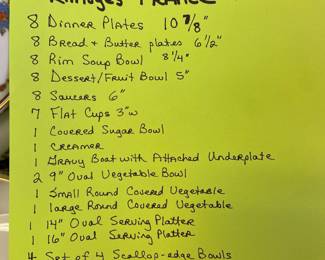 FRANCE
8 Dinner Plates 10 7/8"
8 Bread + Butter plates 6 1/2"
8 Rim Soup Bowl 8 1/4"
8 Dessert/Fruit Bowl 5"
8 Saucers 6"
7 Flat Cups 3"w
1 Covered Sugar Bowl
1 Creamer
1 Gravy Boat with Attached Underplate
2 9" Oval Vegetable Bowl
1 Small Round Covered Vegetable
1 large Round Covered Vegetable
1 14" Oval Serving Platter
1 16" Oval Serving Platter
4 Set of 4 Scallop-edge Bowls